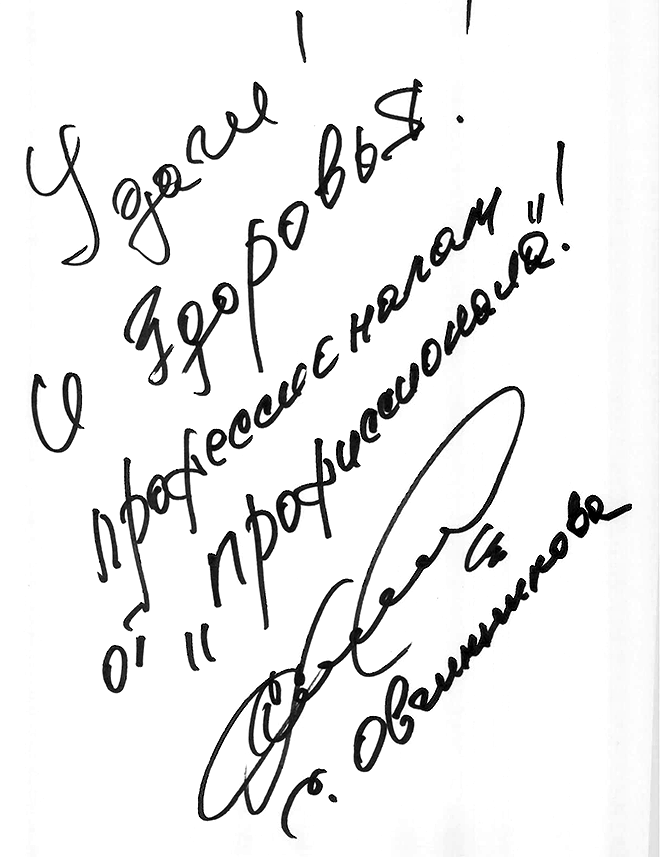 Удачи!
И здоровья.
профессионалам
от "профиссионала"!
с. Овчинникова